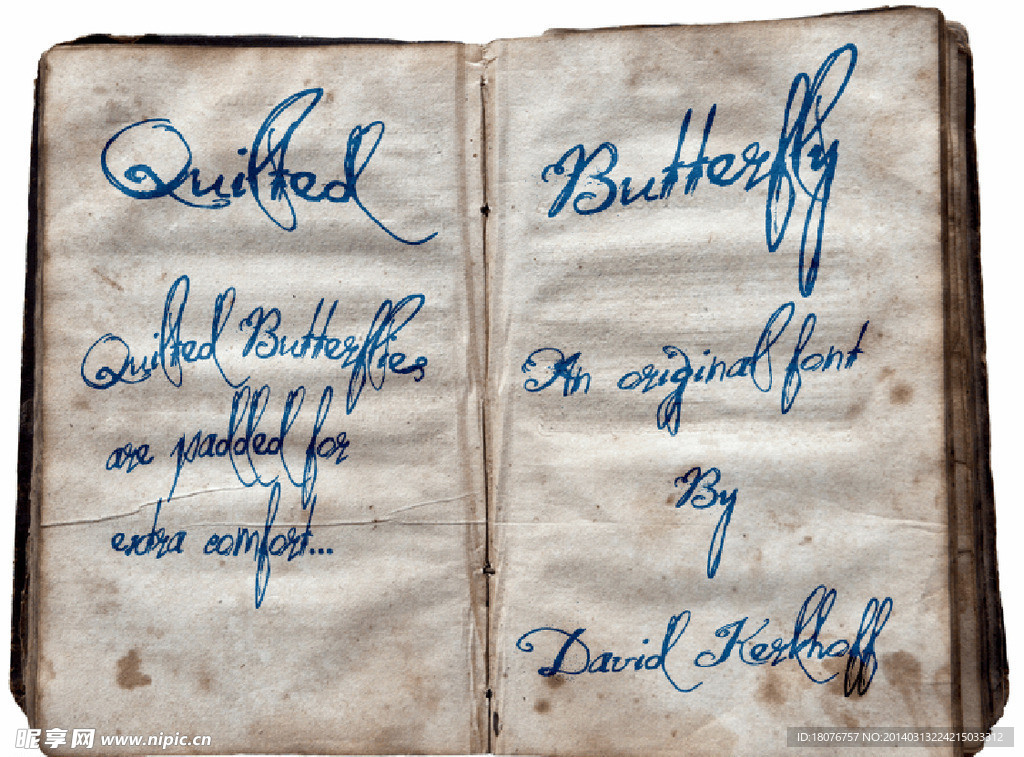 Quilted
Quilted Butterflies
are padded for
extra comfort...
Butterfly
An original font
By
David Kerkhoff
昵享网 www.nipic.cn
ID:18076757 NO:20140313224215033312